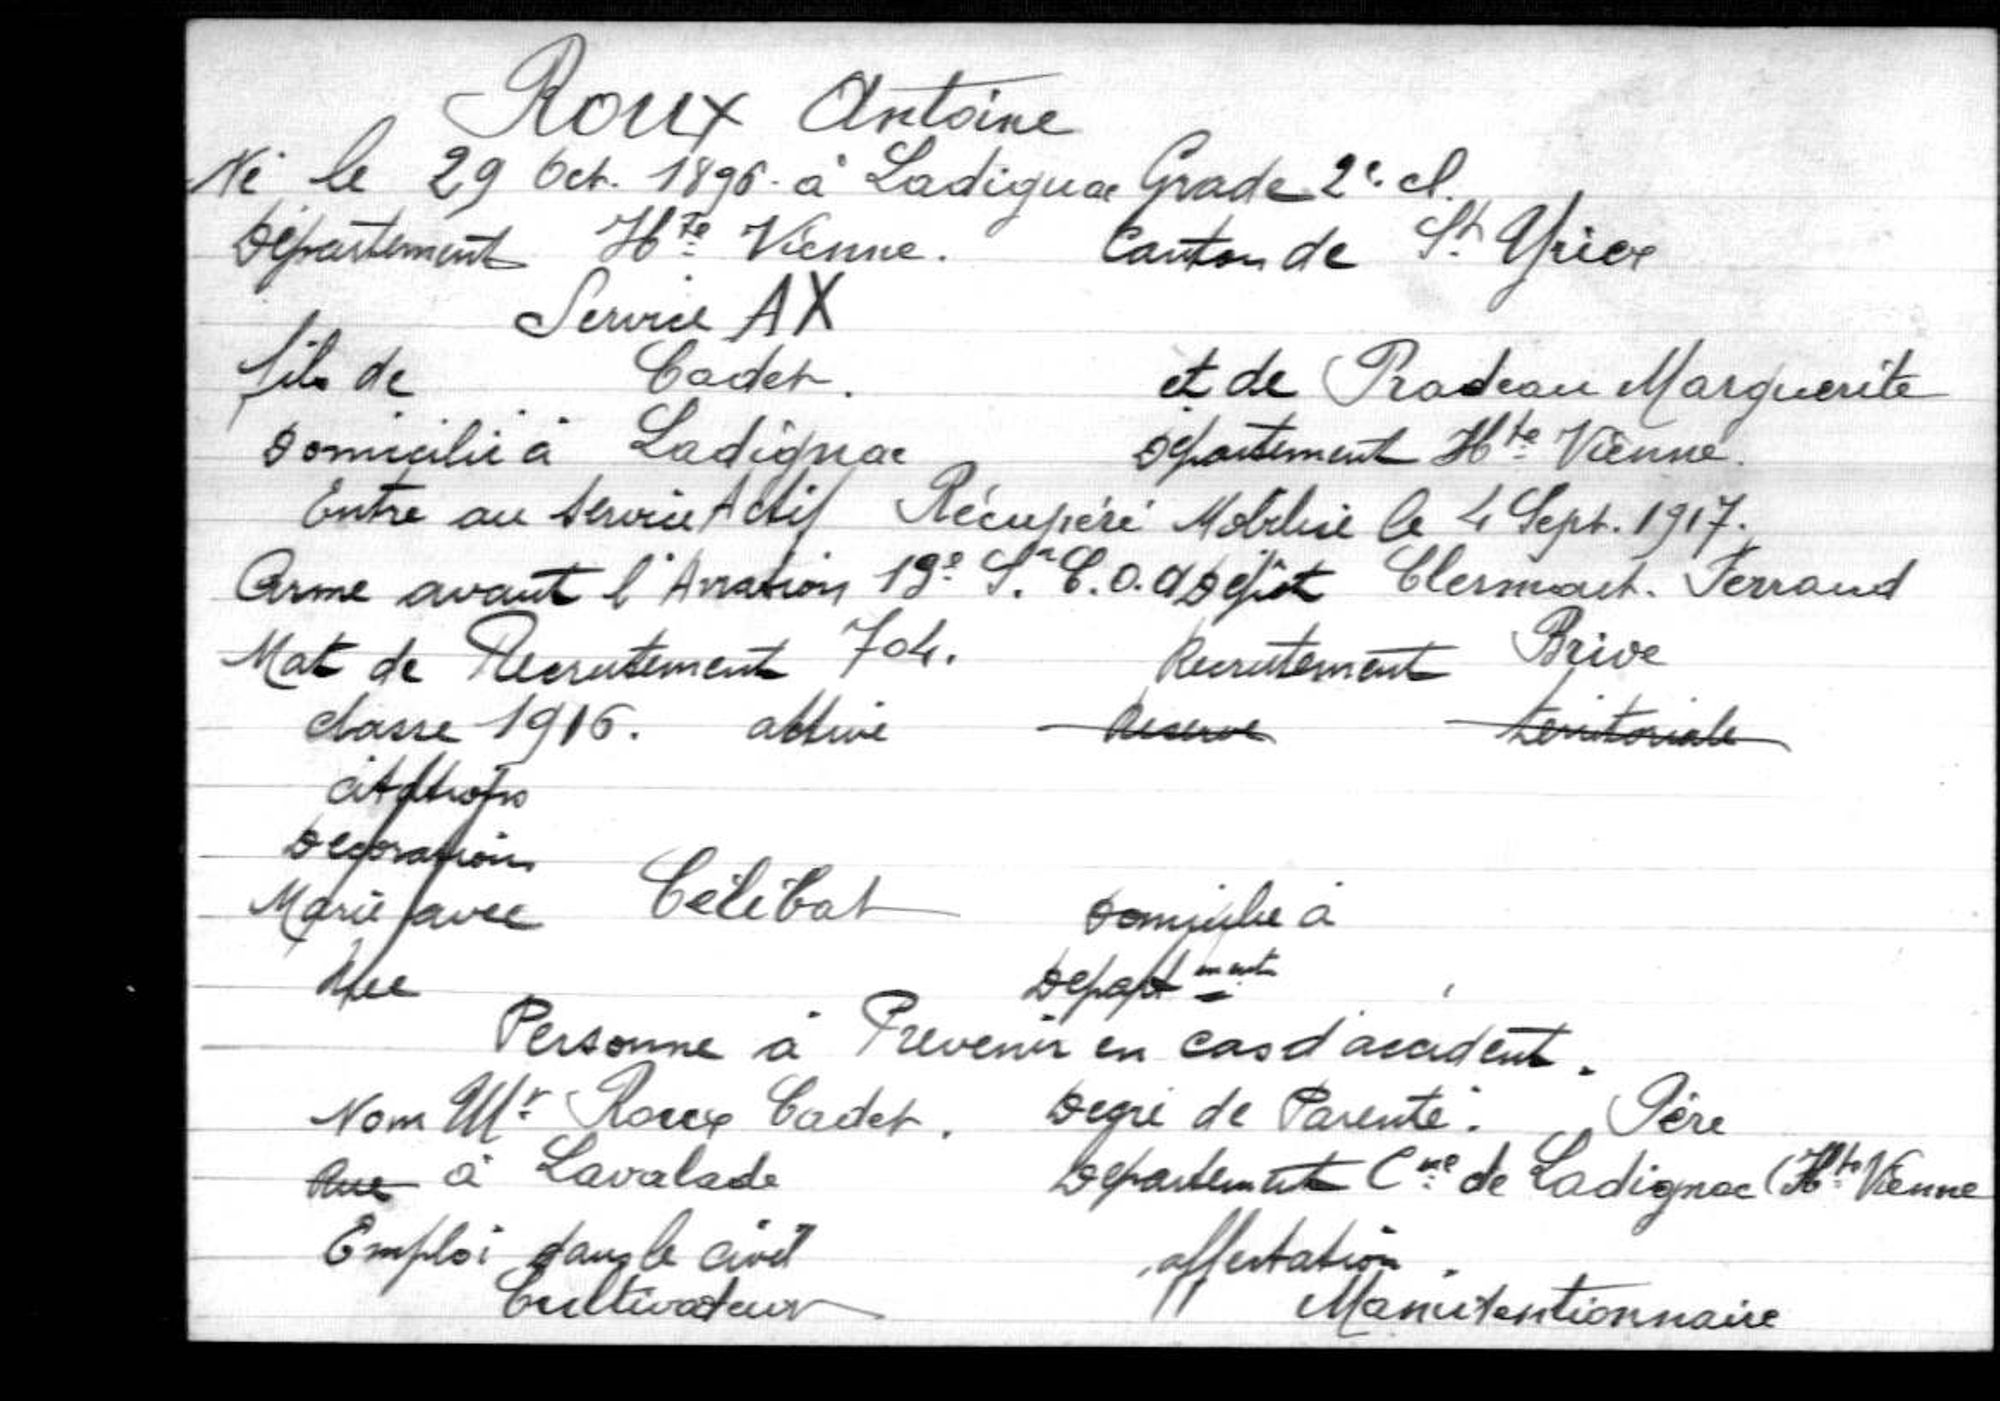 Roux Antoine
Né le 29 Oct. 1896 à Ladignac Grade 2e cl.
Département Hte Vienne. Canton de St Yrieix
Service AX
fils de Cadet. et de Pradeau Marguerite
Domicilié à Ladignac Département Hte Vienne.
Entre au Service Actif Récupéré Mobilisé le 4 Sept. 1917.
Arme avant l'Aviation 19e Son C.O.A Dépôt Clermont-Ferrand
Mat de Recrutement 704. Recrutement Brive
classe 1916. active Réserve territoriale
citations
Décorations
Marié avec Célibat Domicilié à
Née Département
Personne à Prévenir en cas d'accident.
Nom Mr Roux Cadet. Degré de Parenté. Père
Rue à Lavalade Département Cne de Ladignac (Hte Vienne
Emploi dans le civil affectation.
Cultivateur Manutentionnaire